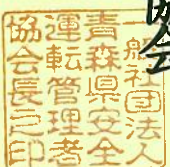 一般社団法人
青森県安全
運転管理者
協会長之印